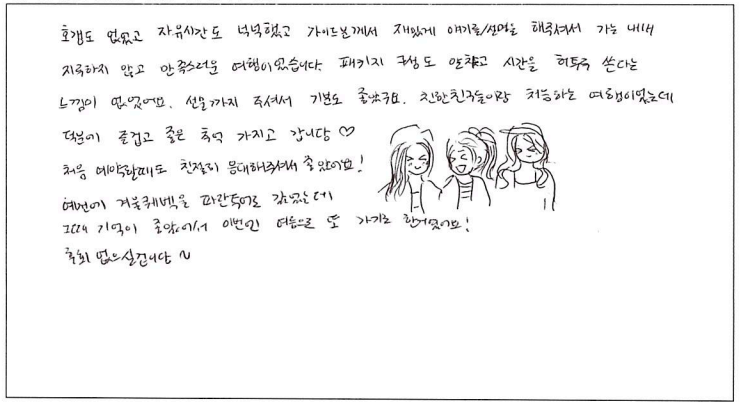 호갱도 없었고 자유시간도 넉넉했고 가이드분께서 재밌게 얘기를/설명을 해주셔서 가는 내내
지루하지 않고 만족스러운 여행이었습니다. 패키지 구성도 알차고 시간을 허투루 쓴다는
느낌이 없었어요. 선물까지 주셔서 기분도 좋았구요. 친한친구들이랑 처음하는 여행이었는데
덕분에 즐겁고 좋은 추억 가지고 갑니당 ♡
처음 예약할때도 친절히 응대해주셔서 좋았어요!
예전에 겨울퀘벡을 파란투어로 갔었는데
그때 기억이 좋았어서 이번엔 여름으로 또 가기로 한거였어요!
후회 없으실겁니당 ~